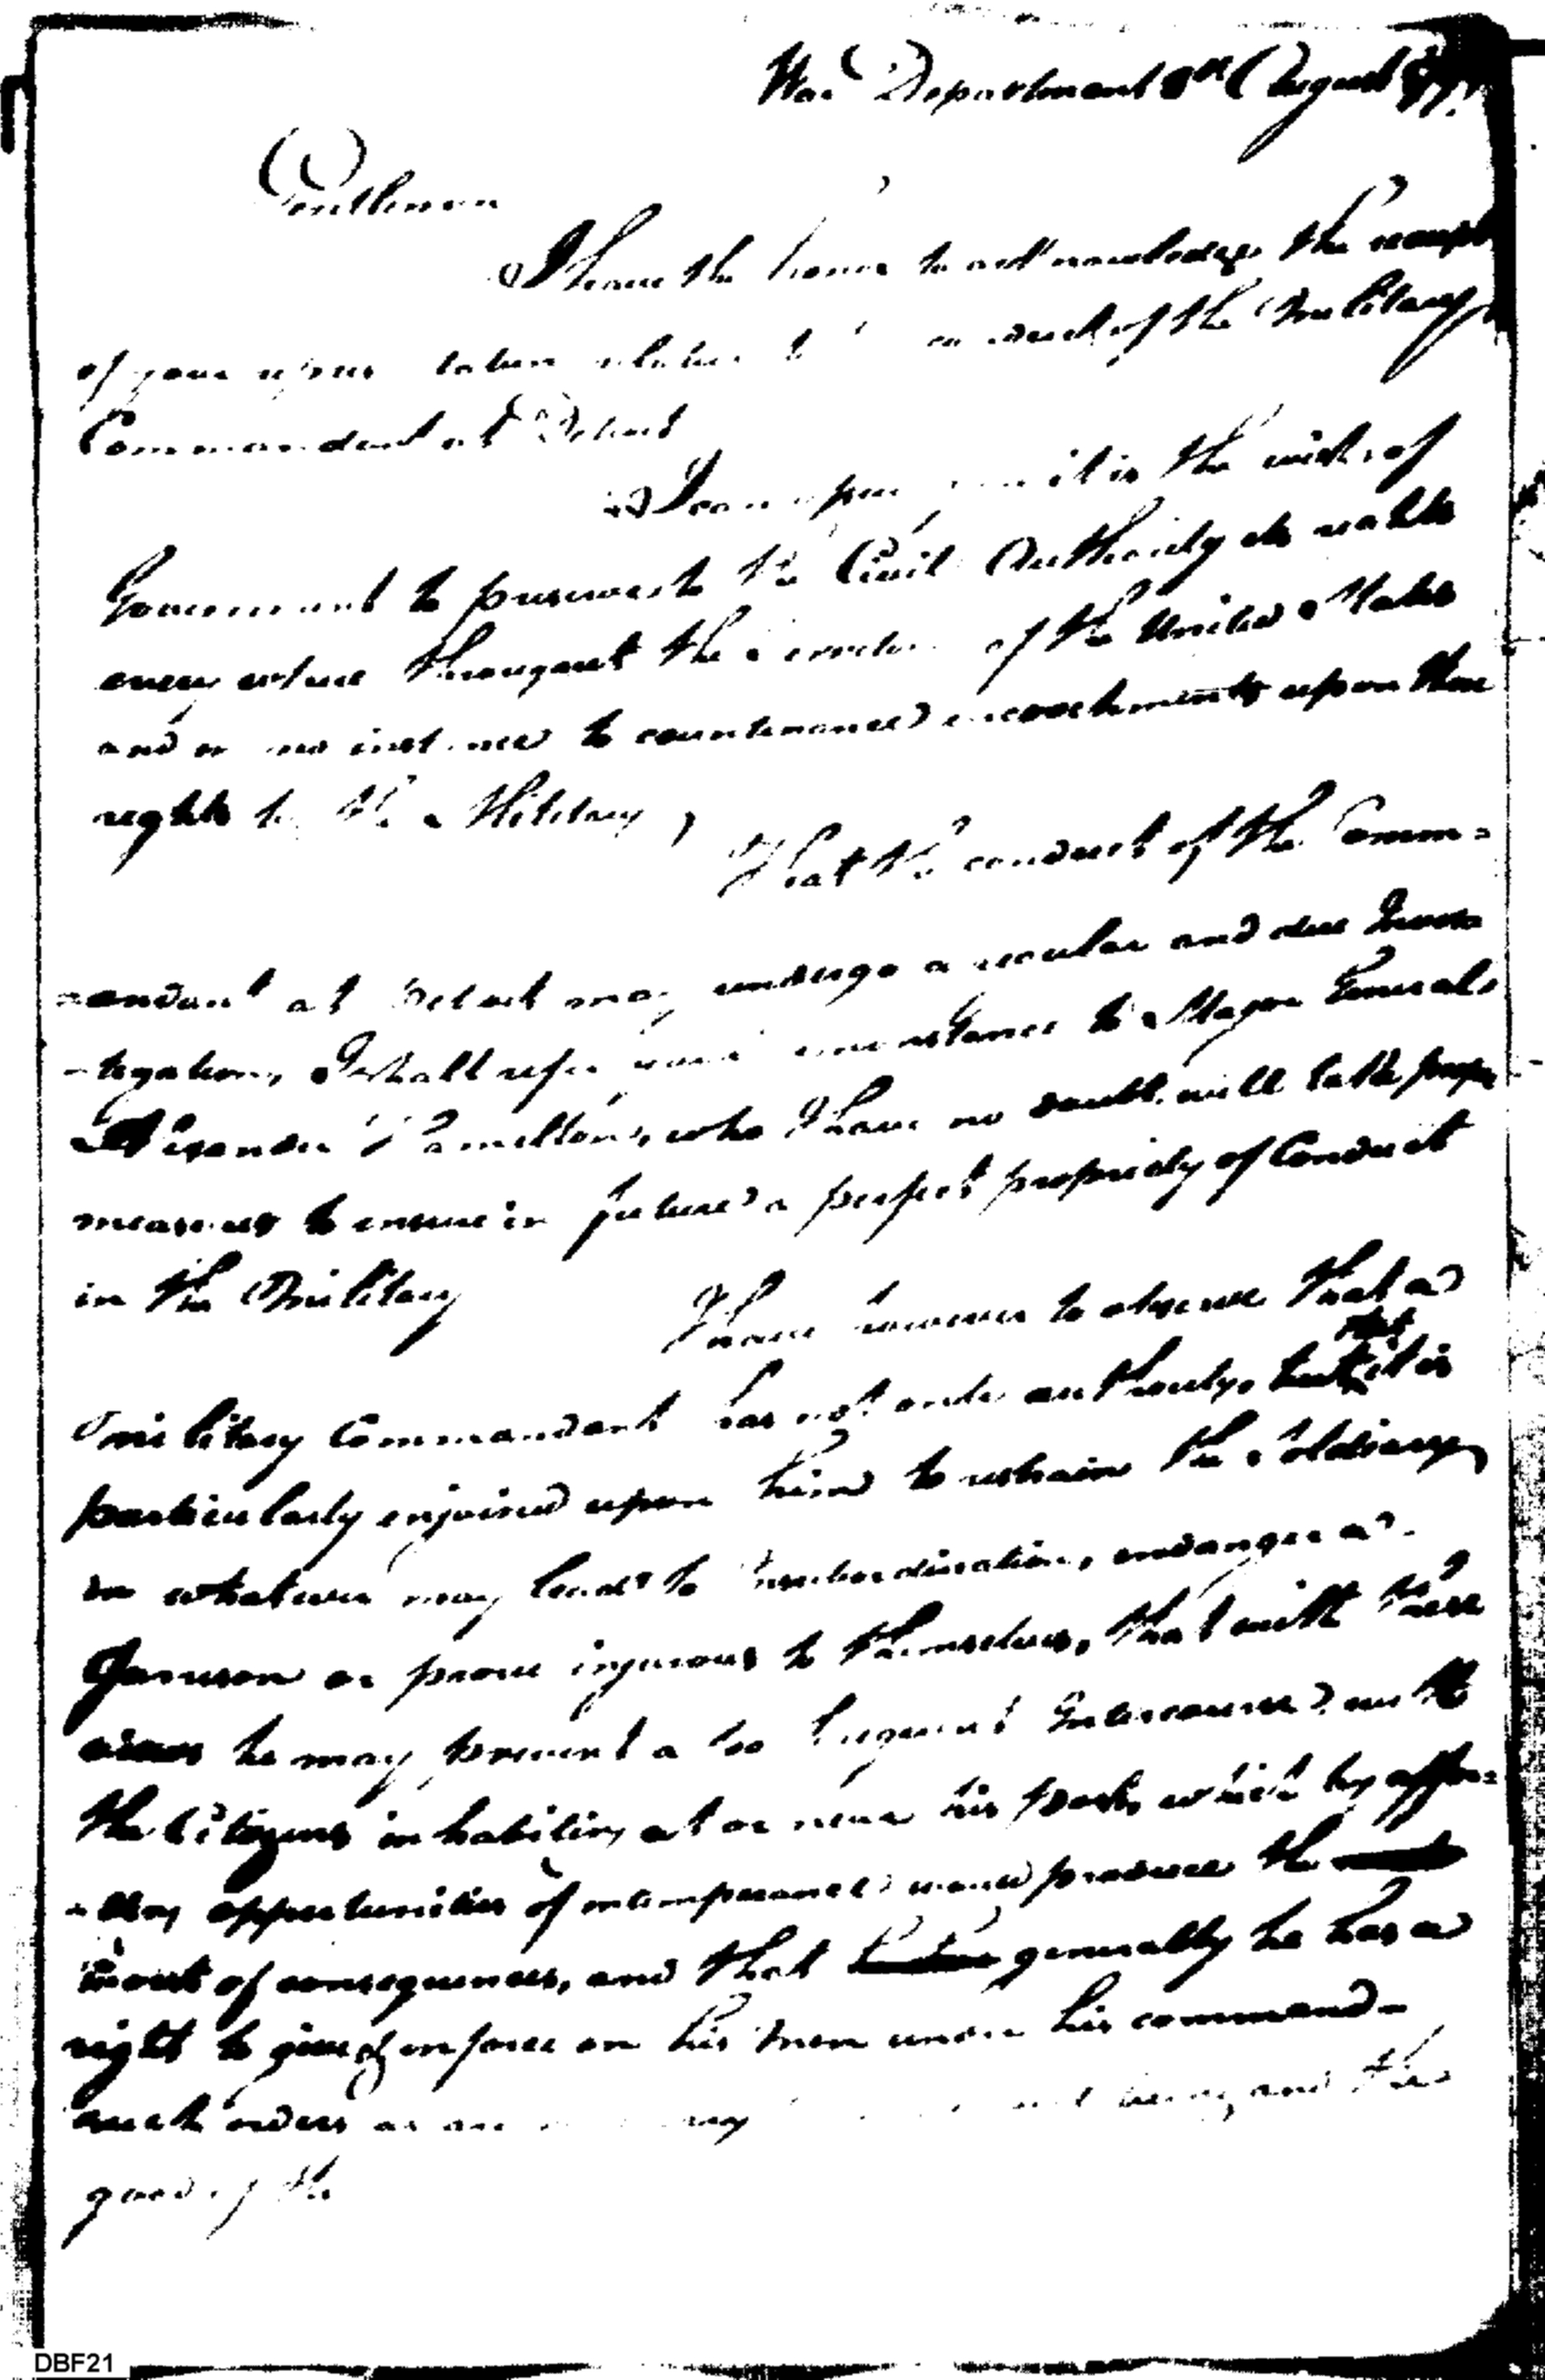 War Department 8th August
Gentlemen
I have the honor to acknowledge the receipt
of your relative to conduct of the Military
Commandant at Detroit
I can it is the wish of
Government to preserve to the Civil Authority its rights
every where throughout the of the United States
and in no instance to countenance encroachments upon these
rights by the Military,
That the conduct of the Comm=
=andant at Detroit may undergo a regular and due Inves
-tigation, I shall refer your to Major General
Alexander Hamilton, who I have no doubt will take proper
measures to ensure in future a perfect propriety of Conduct
in the Military
I have however to observe that a
Military Commandant has not only authority, but that it is
particularly enjoined upon him to restrain the Soldiery
in whatever may lead to Insubordination, endanger a
Garrison or prove injurious to themselves, that with these
views he may prevent a too frequent Intercourse with
the Citizens inhabiting at or near his post, which by affor=
-ding opportunities of intemperance would produce the
worst of consequences, and that generally he has a
right to give & enforce on his men under his command
such orders as are being and the
good of the
DBF21